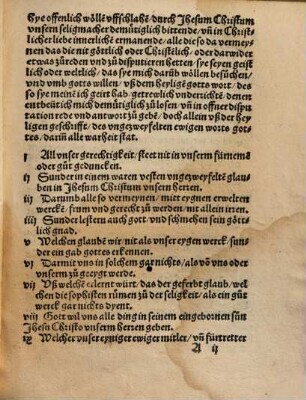 Hye offenlich wölle uffschlaße, durch Jhesum Christum
unsern seligmacher demütiglich bittende, uñ in Christ-
licher liebe innerliche ermanende, alle die so da vermey-
nen das die nit götlich oder Christẽlich, oder darwider
etwas zůreden und zů disputieren hetten, sye seyen geist
lich oder weltlich, das sye mich darũb wöllen besůchen,
und umb gotts willen, uß dem heylige gotts wort, des
so sye meine ich geirt hab, getrewlich underrichte, denen
entbeüt ich mich demütiglich zů losen, uñ in offner dispu
tation rede und antwort zů gebẽ, doch allein uß der hey
ligen geschrifft, des ungezweyfelten ewigen worts got-
tes, dariñ alle warheit stat.
j All unser gerechtigkeit, steet nit in unserm fürneme
oder gůt geduncken.
ij Sunder in einem waren vesten ungezweyfelte glau-
ben in Jhesum Christum unsern herren.
iij Darumb alle so vermeynen, mitt eygnen erwelten
wercke frum und gerecht zů werden, nit allein irren.
iiij Sunder lestern auch gott, und schmehen sein göt-
lich gnad.
v Welchen glaubẽ wir nit als unser eygen werck, sun-
der ein gab gottes erkennen.
vj Darmit uns in solchem gar nichts, als võ uns oder
unserm zů geeygt werde.
vij Uß welchẽ erlernt würt, das der geferbt glaub, wel
chen die sophisten rümen zů der seligkeit, als ein gůt
werck gar nichts dyent.
viij Gott wil uns alle ding in seinem eingebornen sun
Jhesu Christo unserm herren geben.
ix Welcher unser eyniger ewiger mitler, uñ fürtretter
A ij